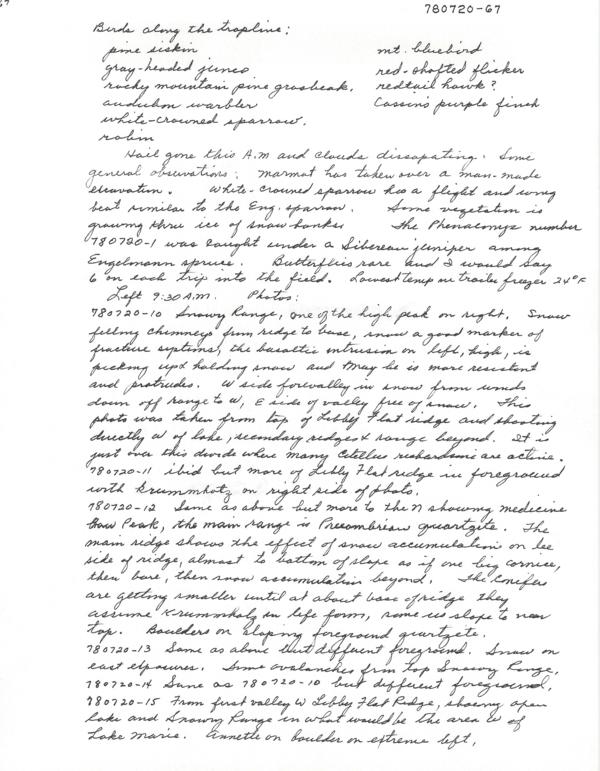 780720-67
Birds along the trapline:
pine siskin
mt. bluebird
gray-headed junco
red-shafted flicker
rocky mountain pine grosbeak.
redtail hawk?
audubon warbler
Cassins purple finch
white-crowned sparrow.
robin
Hail gone this A.M and clouds dissapating. Some
general observations: marmot has taken over a man-made
excavation. White-crowned sparrow has a flight and wing
beat similar to the Eng. sparrow. Some vegetation is
growing thru ice of snow banks The Phenacomys number
780720-1 was caught under a Siberean juniper among
Engelmann spruce. Butterflies rare and I would say
6 on each trip into the field. Lowest temp in trailer freezer 24°F
Left 9:30 A.M. Photos:
780720-10 Snowy Range, one of the high peak on right. Snow
filling chimneys from ridge to base, snow a good marker of
fracture systems, the basaltic intrusion on left, high, is
picking up & holding snow and may be is more resistent
and protrudes. W side of valley in snow from winds
down off range to W, E side of valley free of snow. This
photo was taken from top of Libby Flat ridge and shooting
directly W of lake, secondary ridges & range beyond. It is
just over this divide where many Citellus richardsoni are active.
780720-11 ibid but more of Libby Flat ridge in foreground
with Krummholz on right side of photo.
780720-12 Same as above but more to the N showing medicine
Bow Peak, the main range is Precambrian quartzite. The
main ridge shows the effect of snow accumulation on lee
side of ridge, almost to bottom of slope as if one big cornice,
then bare, then snow accumulation beyond. The Conifers
are getting smaller until at about base of ridge they
assume Krummholz in life form, some up slope to near
top. Boulders on sloping foreground quartzite.
780720-13 Same as above but different foreground. Snow on
east exposures. Some avalanches from top Snowy Range,
780720-14 Same as 780720-10 but different foreground,
780720-15 From first valley W Libby Flat Ridge, showing open
lake and Snowy Range in what would be the area W of
Lake Marie. Annette on boulder on extreme left,